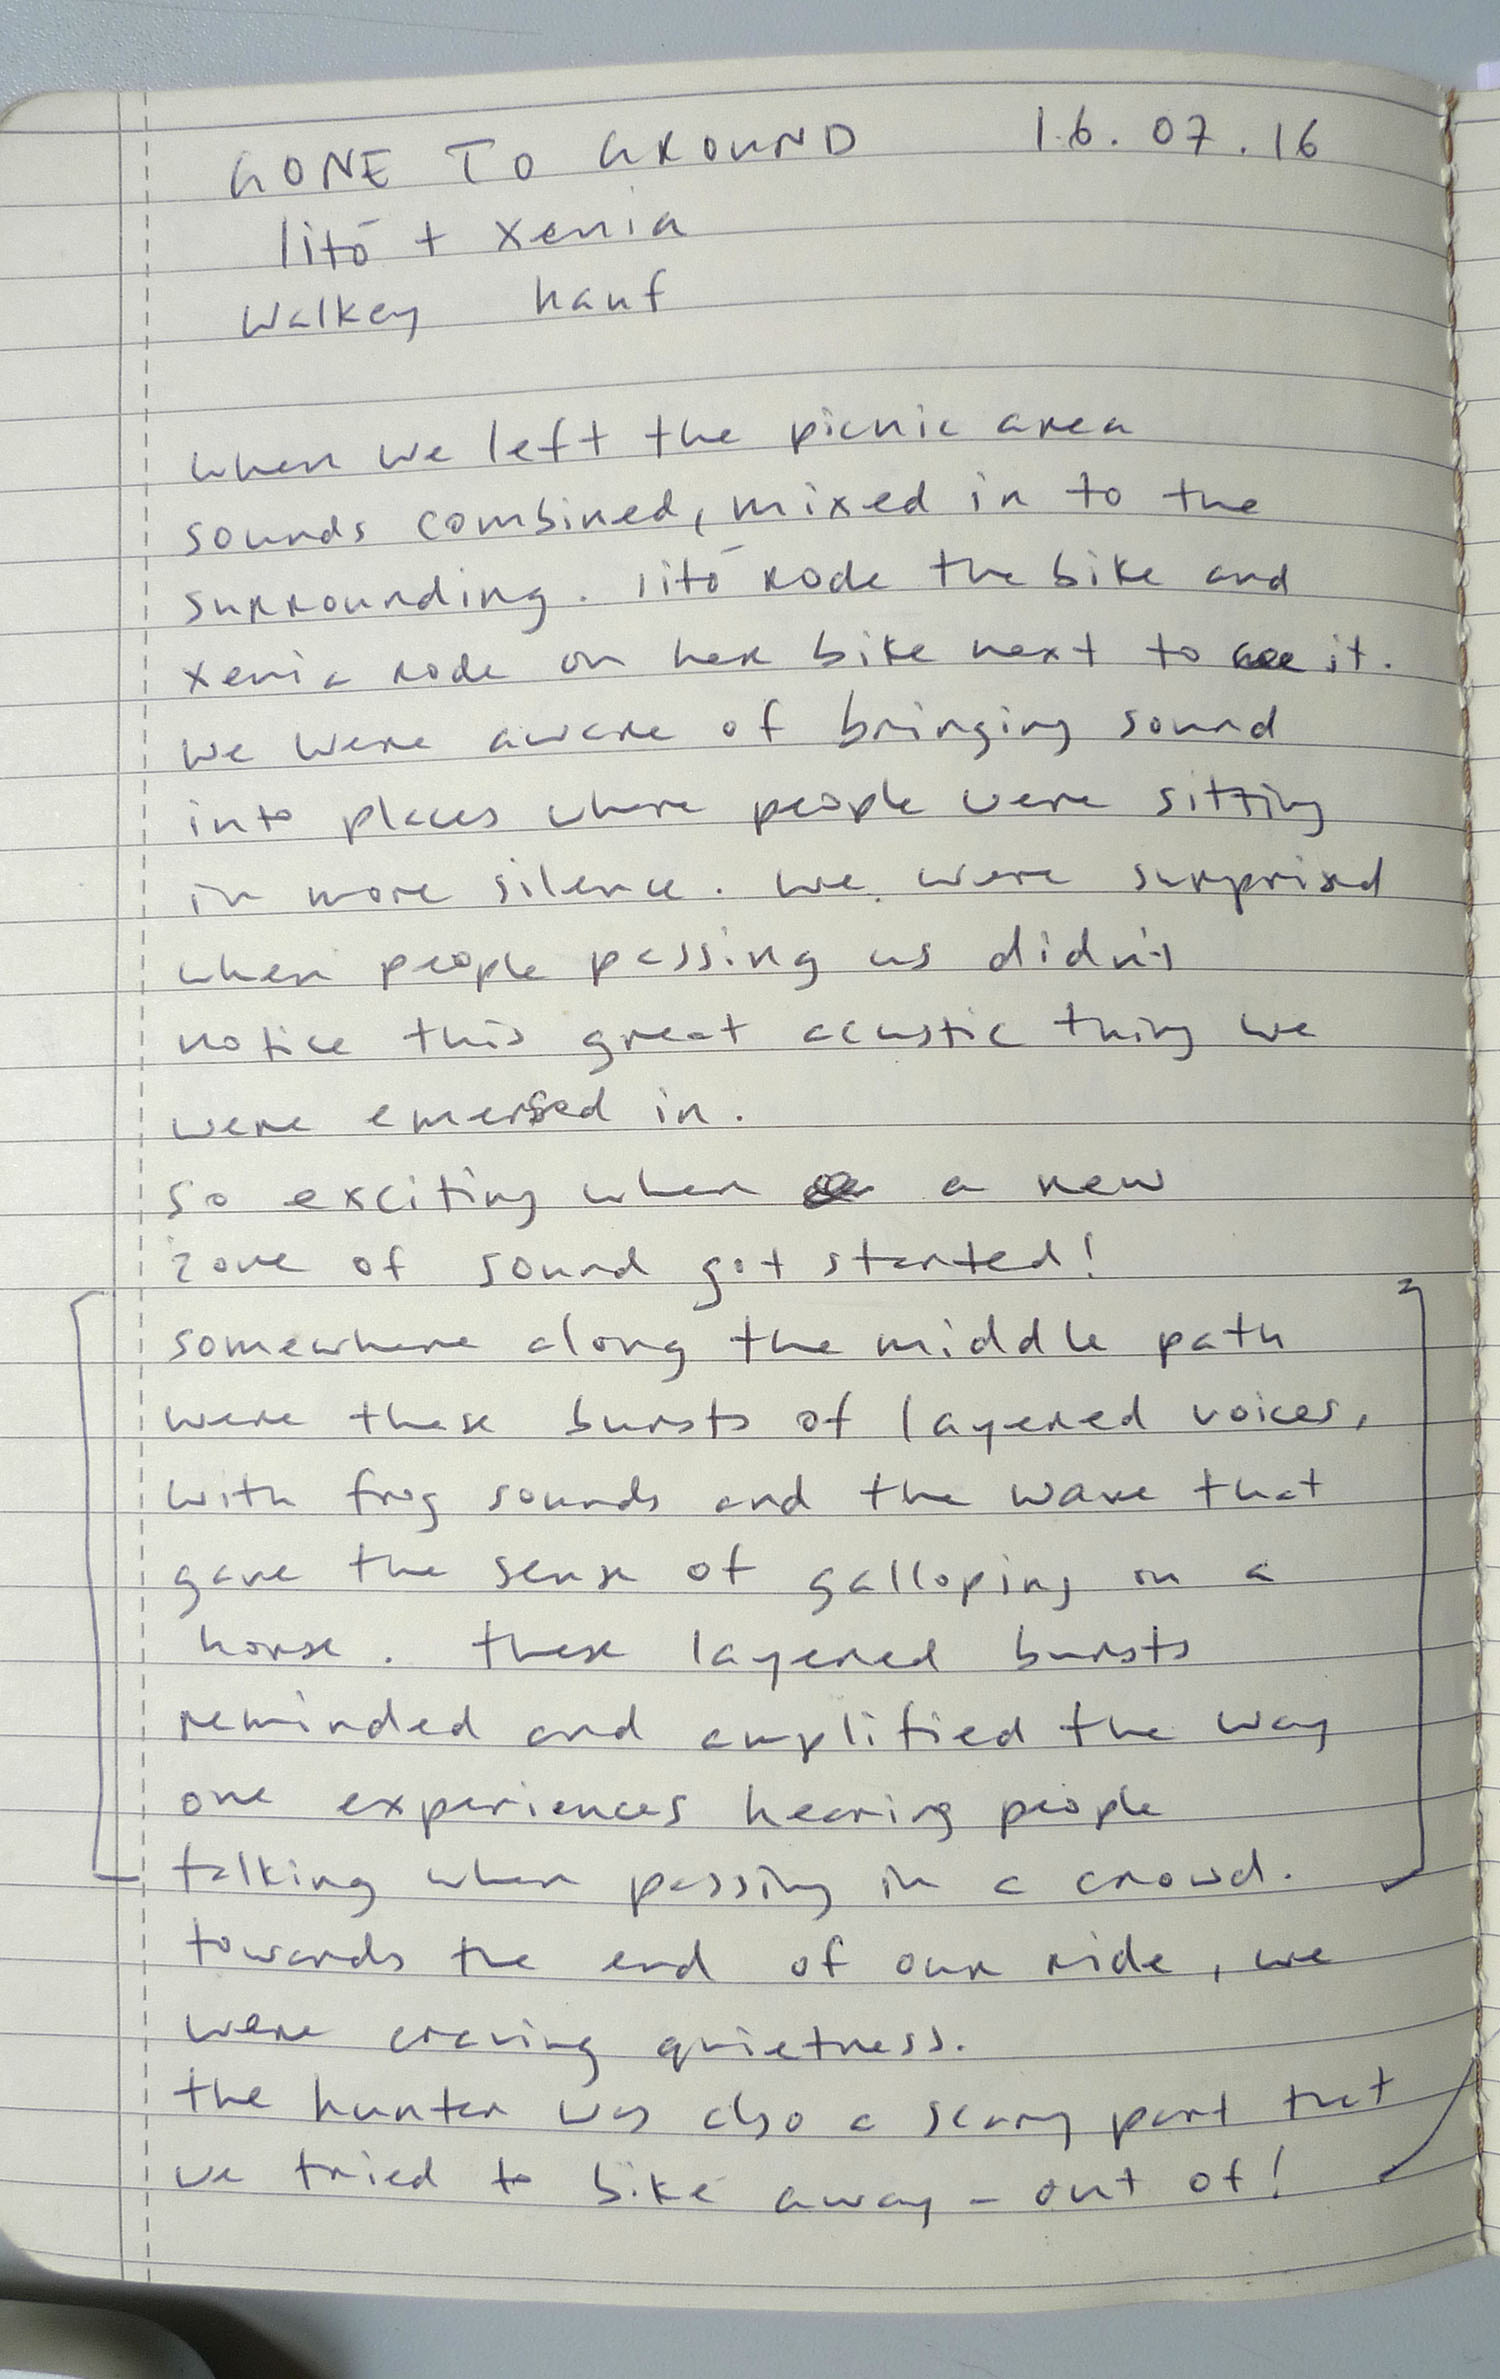 GONE TO GROUND 16.07.16
litó + xenia
Walkey hanf
when we left the picnic area
sounds combined, mixed in to the
surrounding. litó rode the bike and
xenia rode on her bike next to it.
we were aware of bringing sound
into places where people were sitting
in more silence. we were surprised
when people passing us didn't
notice this great acustic thing we
were emersed in.
so exciting when a new
zone of sound got started!
somewhere along the middle path
were these bursts of layered voices,
with frog sounds and the wave that
gave the sense of galloping on a
horse. these layered bursts
reminded and amplified the way
one experiences hearing people
talking when passing in a crowd.
towards the end of our ride, we
were craving quietness.
the hunter was also a scary part that
we tried to bike away - out of!